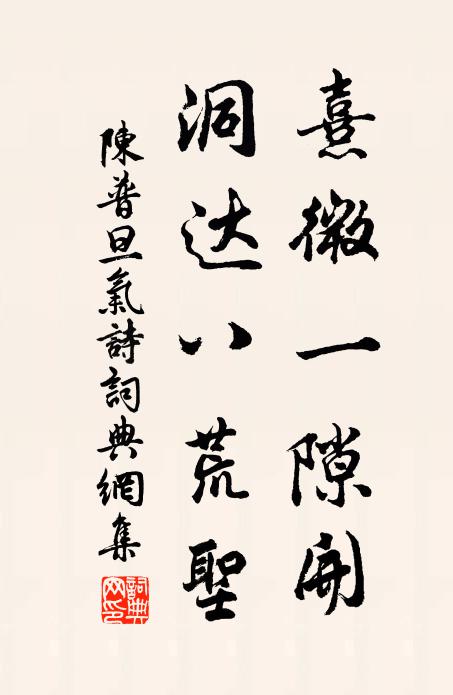 熹微一隙開
洞达八荒聖
陳普旦氣詩詞典網集
詞典网印